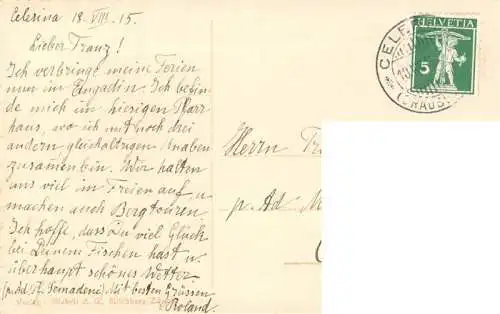 Celerina 18. VIII. 15.
Lieber Franz!
Ich verbringe meine Ferien
nun im Engadin. Ich befin
de mich im hiesigen Pfarr
haus, wo ich mit noch drei
andern gleichaltrigen Knaben
zusammen bin. Wir halten
uns viel im Freien auf, u.
machen auch Bergtouren.
Ich hoffe, dass Du viel Glück
bei Deinem Fischen hast u.
überhaupt schönes Wetter
(p. Ad. Semadeni) Mit besten Grüssen
Roland.
Herrn
p. Ad.
HELVETIA
5
CELE